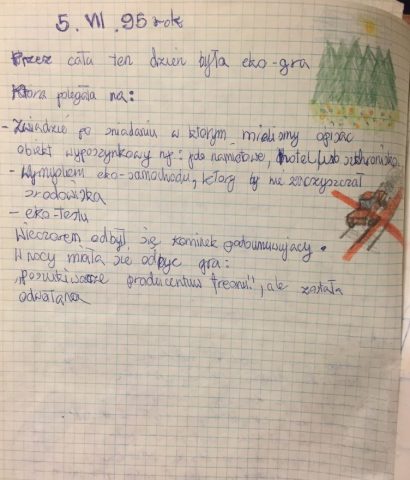 5. VII. 95 rok
Przez cała ten dzień była eko-gra
Która polegała na:
- Zwiadzie po śniadaniu w którym mieliśmy opisac
obiekt wypoczynkowy np: pole namiotowe, hotel lub schronisko
- Wymyślem eko-samochodu, ktory by nie zanieczyszczał
środowiska
- eko-testu
Wieczorem odbył się kominek podsumowujący.
W nocy miała się odbyc gra:
"Poszukiwanie producentów freonu", ale została
odwołana